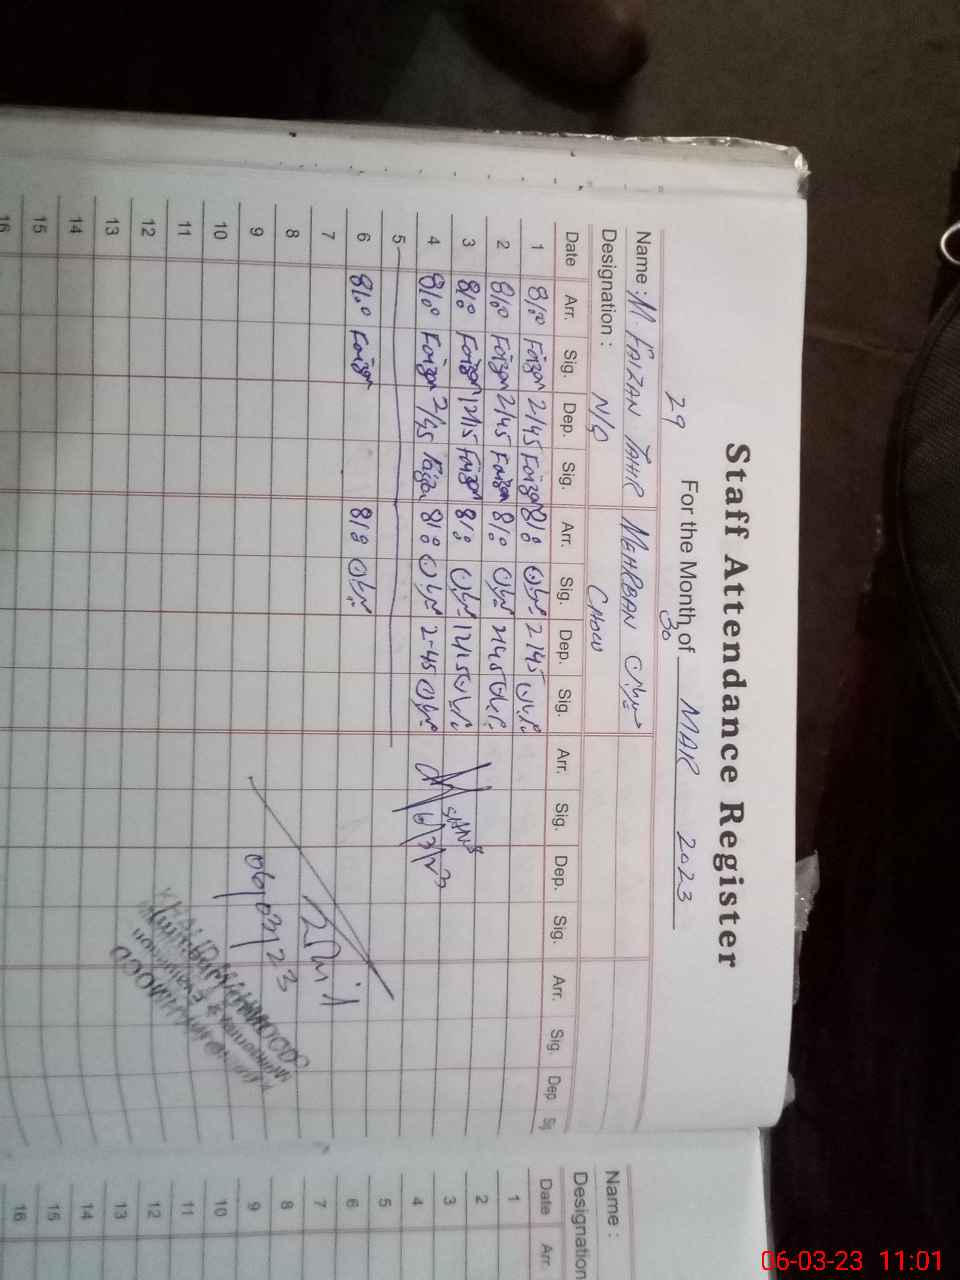 Staff Attendance Register
For the Month of MAR 2023
29 30
Name : M. FAIZAN TAHIR MEHRBAN
Designation : N/Q CHOW
Date Arr. Sig. Dep. Sig. Arr. Sig. Dep. Sig. Arr. Sig. Dep. Sig. Arr. Sig. Dep
1 8/:0 Faizan 2/45 Faizan 8/:0 2/45
2 8/:0 Faizan 2/45 Faizan 8/:0 2/45
3 8/:0 Faizan 12/15 Faizan 8/:0 12/15
4 8/:0 Faizan 2/45 Faizan 8/:0 2-45
5
6 8/:0 Faizan 8/:0
7
8
9
10
11
12
13
14
15
16
6/3/23
06/03/23
Name :
Designation
Date Arr.
1
2
3
4
5
6
7
8
9
10
11
12
13
14
15
16
06-03-23 11:01